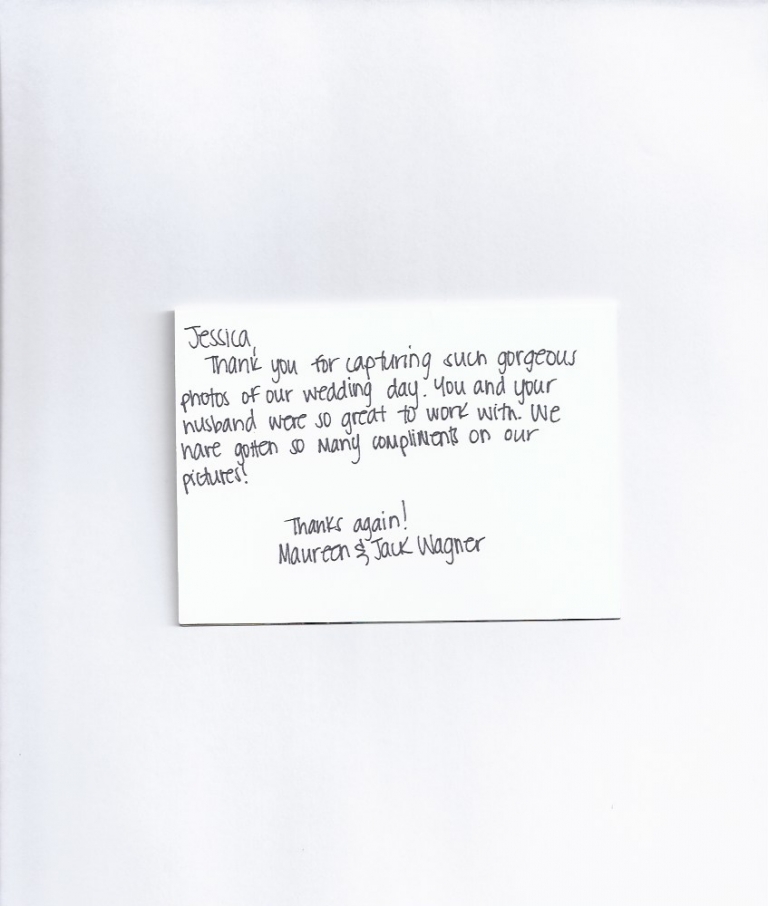 Jessica,
Thank you for capturing such gorgeous
photos of our wedding day. You and your
husband were so great to work with. We
have gotten so many compliments on our
pictures!
Thanks again!
Maureen & Jack Wagner